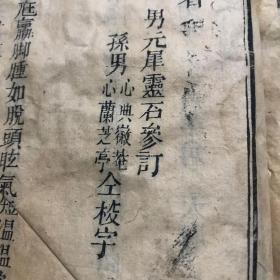 男元犀靈石參訂
孫男心典徽菴
心蘭芝亭
仝校字
尫羸脚腫如脫頭眩氣短溫溫